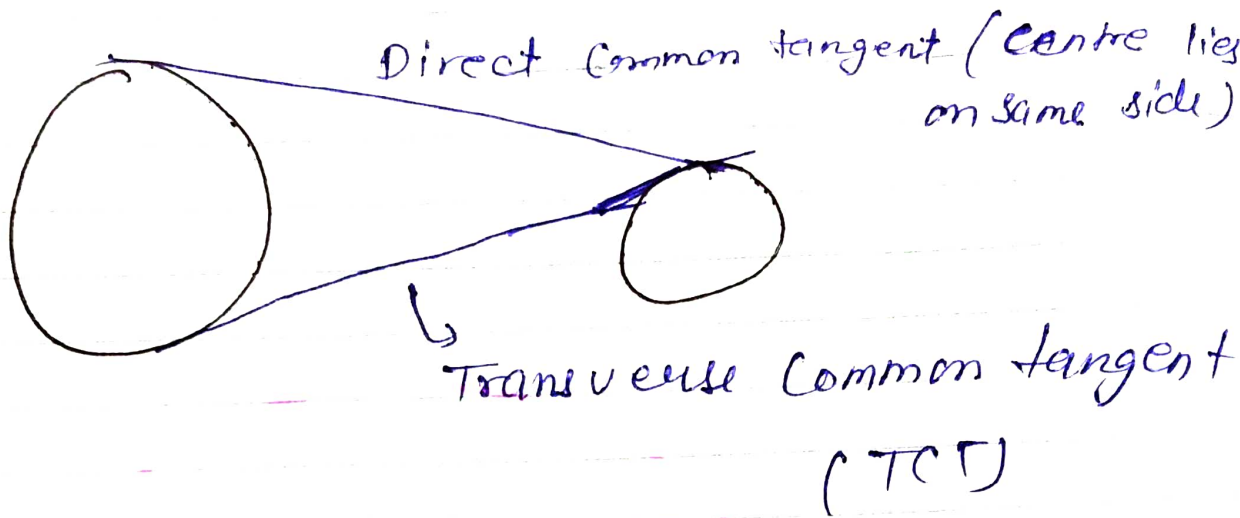 Direct Common tangent (Centre lies
on same side)
Transverse Common tangent
(TCT)